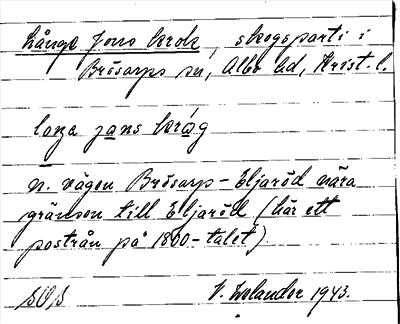 Långe Jons krok, skogsparti i
Brösarps sn, Albo hd, Krist. l.
laŋa jans kråg
n. vägen Brösarp-Eljaröd nära
gränsen till Eljaröd (här ett
postrån på 1800-talet).
V. Zolander 1943.